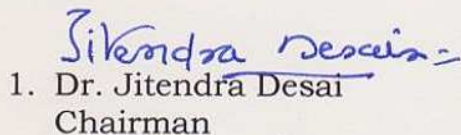 Jitendra Desai
1. Dr. Jitendra Desai
Chairman